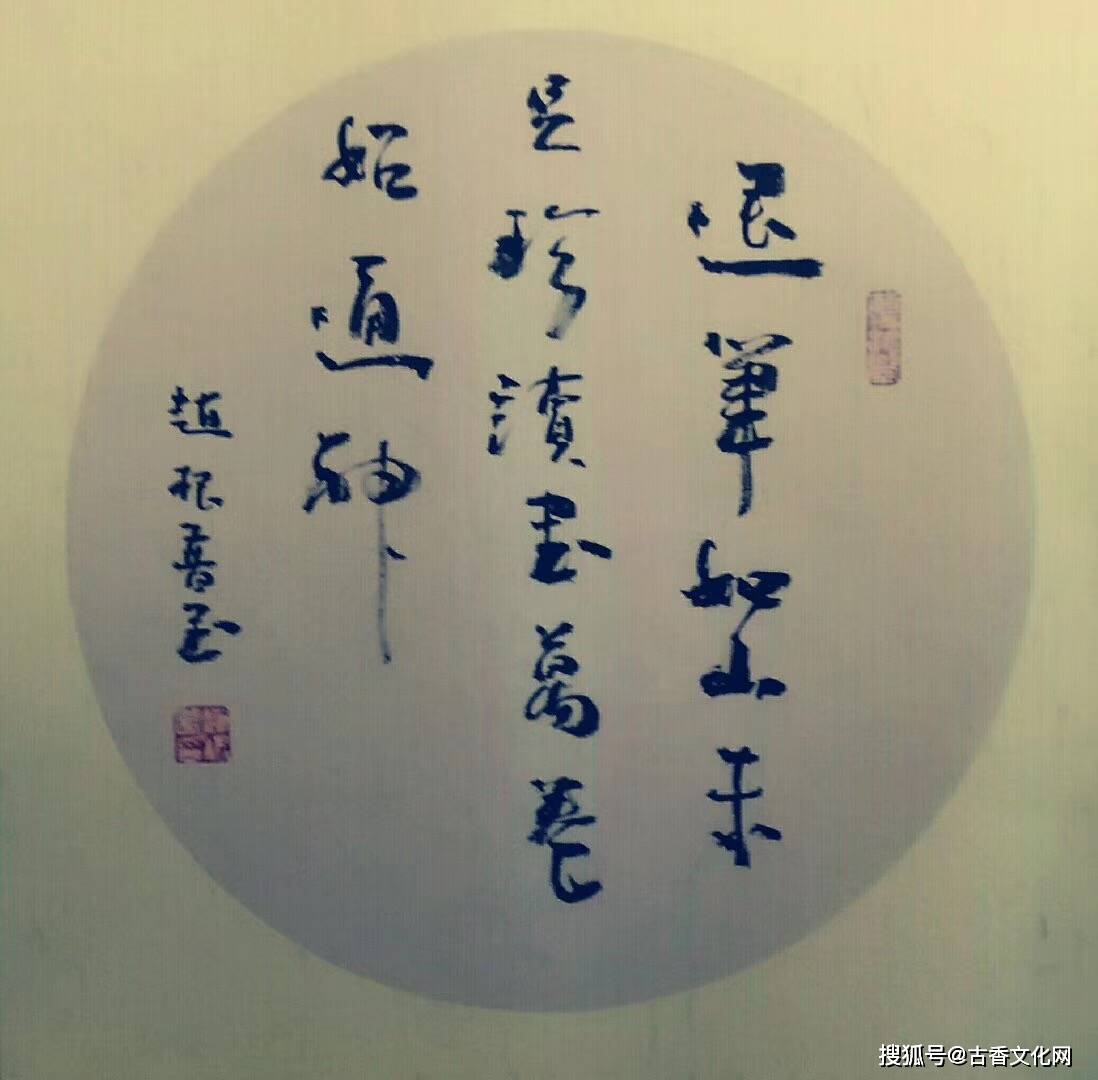 退筆如山未
足珍讀書萬卷
始通神
趙根書
搜狐号@古香文化网